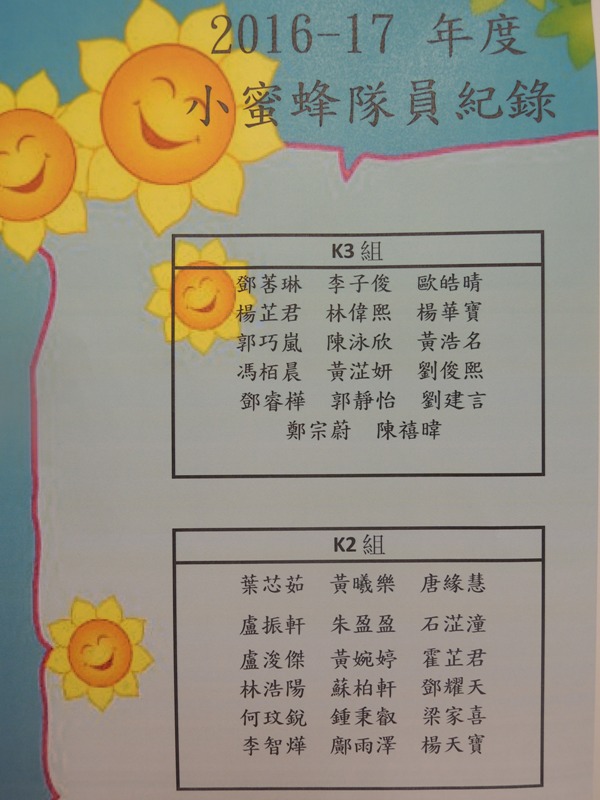 2016-17 年度
小蜜蜂隊員紀錄
K3 組
鄧莟琳 李子俊 歐皓晴
楊芷君 林偉熙 楊華寶
郭巧嵐 陳泳欣 黃浩名
馮栢晨 黃淽妍 劉俊熙
鄧睿樺 郭靜怡 劉建言
鄭宗蔚 陳禧暐
K2 組
葉芯茹 黃曦樂 唐緣慧
盧振軒 朱盈盈 石淽潼
盧浚傑 黃婉婷 霍芷君
林浩陽 蘇柏軒 鄧耀天
何玟銳 鍾秉叡 梁家喜
李智燁 鄺雨澤 楊天寶